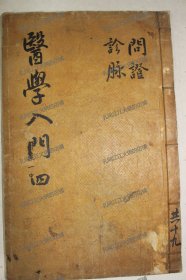 問證
診脈
醫學入門 四
共十九